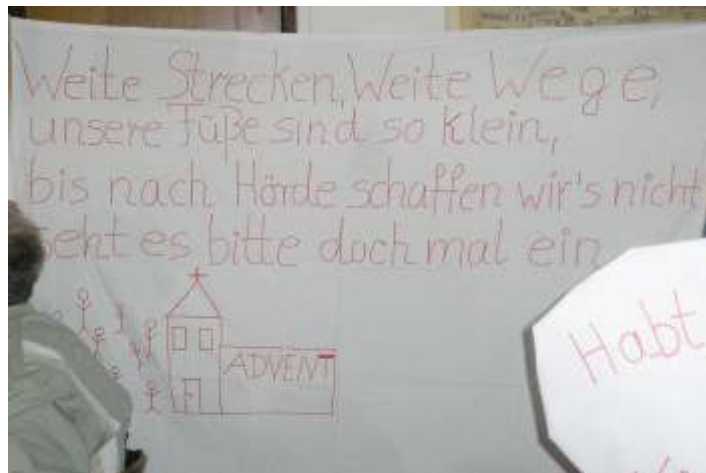 Weite Strecken, Weite Wege,
unsere Füße sind so klein,
bis nach Hörde schaffen wir's nicht
seht es bitte doch mal ein
ADVENT
Habt